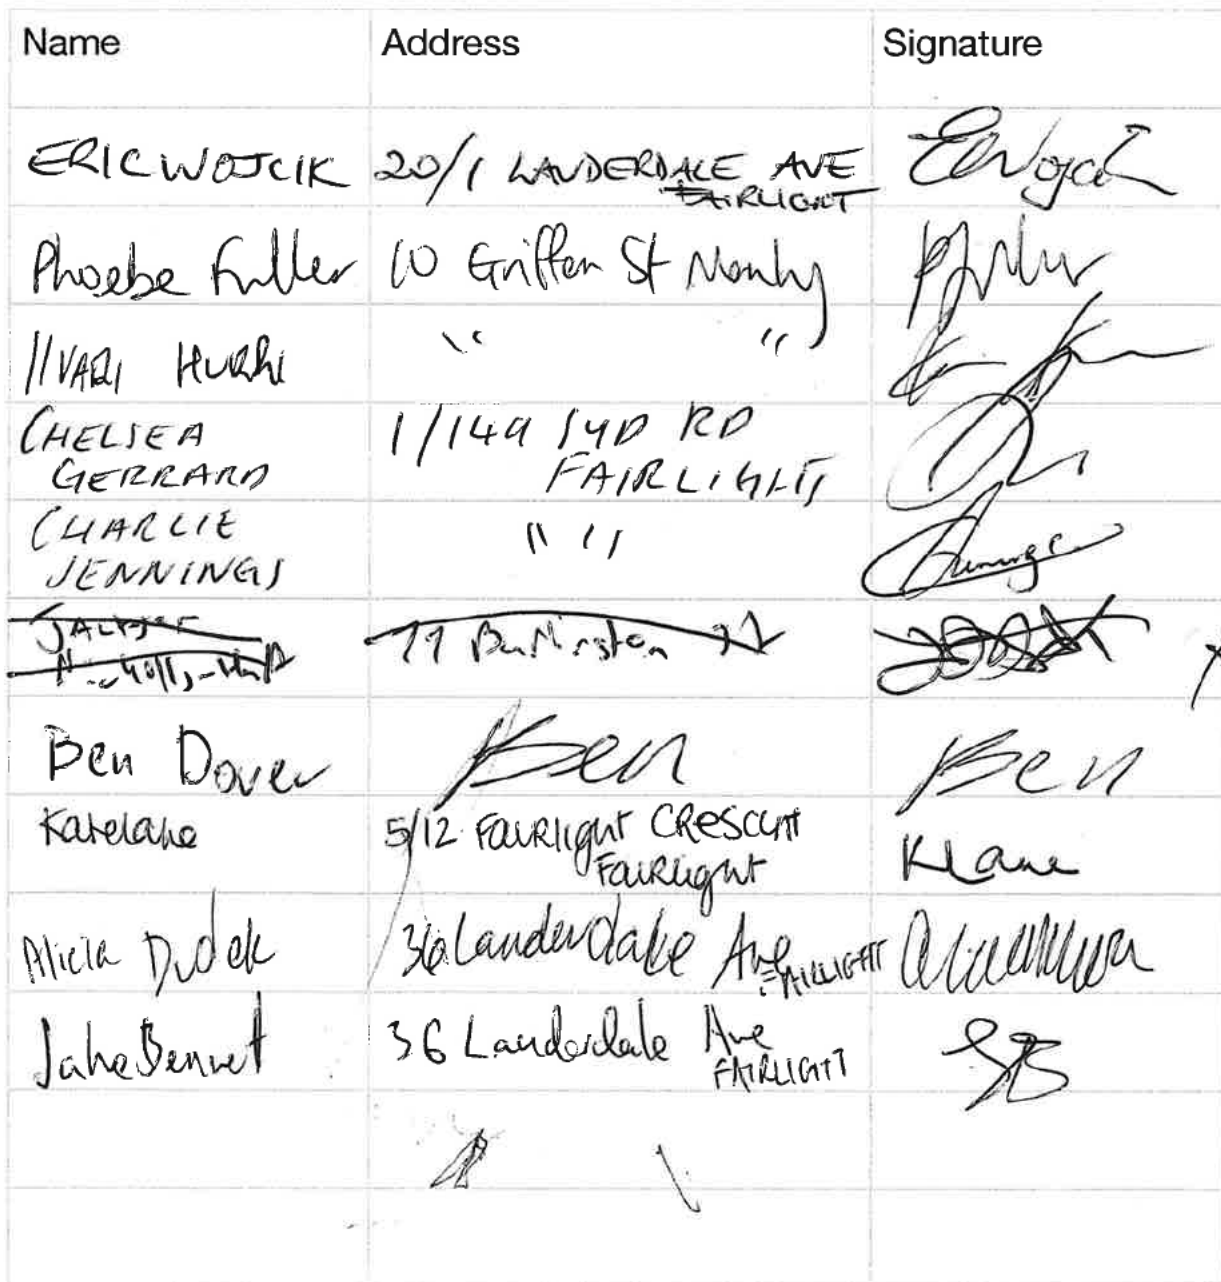 Name Address Signature
ERIC WOJCIK 20/1 LAUDERDALE AVE EWojcik
FAIRLIGHT
Phoebe Fuller 10 Griffen St Manly PFuller
IIVARI HURRI " "
CHELSEA 1/149 SYD RD
GERRARD FAIRLIGHT
CHARLIE " "
JENNINGS Jennings
11
Ben Dover Ben Ben
Katelane 5/12 FAIRLIGHT CRESCENT KLane
FAIRLIGHT
Alicia Dudek 36 Lauderdale Ave
FAIRLIGHT
Jake Bennet 36 Lauderdale Ave JB
FAIRLIGHT